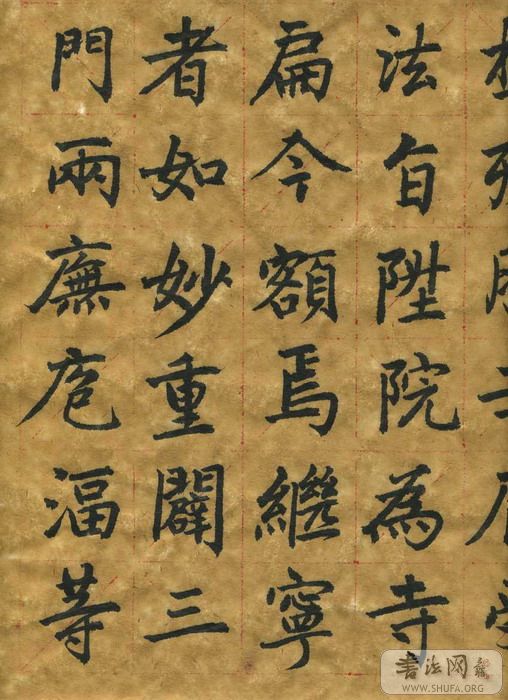 法旨陞院為寺
扁今額焉繼寧
者如妙重闢三
門兩廡庖湢等
書法网
WWW.SHUFA.ORG